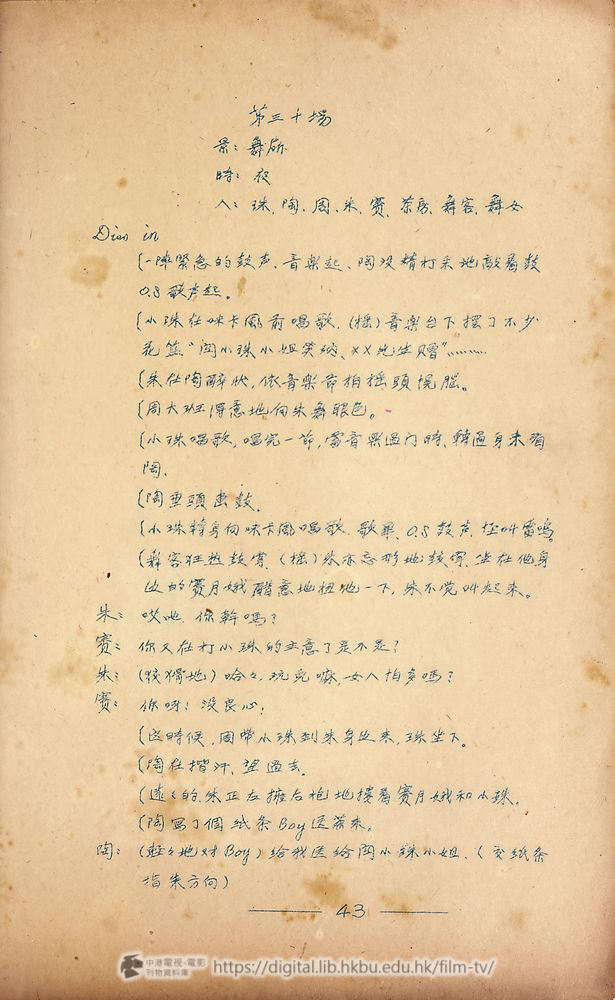 第三十場
景: 舞廳
時: 夜
人: 珠、陶、周、朱、賽、茶房、舞客、舞女
Diss in
(一陣緊急的鼓声、音樂起、陶沒精打采地敲着鼓
O.S 歌声起。
(小珠在咪卡風前唱歌、(摇)音樂台下摆了不少
花篮“閔小珠小姐笑纳、××先生贈”………
(朱仕陶醉狀、依音樂節拍摇頭幌腦。
(周大班得意地向朱舞眼色。
(小珠唱歌,唱完一節,當音樂過门時、轉過身來看
陶、
(陶垂頭 鼓、
(小珠轉身向咪卡風唱歌、歌畢、O.S 鼓声、怪叫雷鳴
(舞客狂热鼓掌、(摇)朱亦忘形地鼓掌、坐在他身
边的賽月娥醋意地扭他一下,朱不觉叫起来。
朱: 哎吔、你幹嗎?
賽: 你又在打小珠的主意了是不是?
朱: (狡猾地)哈々、玩兒嘛,女人怕多嗎?
賽: 你呀!沒良心!
(這時候,周带小珠到朱身边来,珠坐下。
(陶在揩汗、望過去、
(遠々的、朱正左擁右抱地摟着賽月娥和小珠、
(陶写了個纸条 Boy 送茶来。
陶: (輕々地对Boy)给我送给閔小珠小姐、(交紙条
指朱方向)
43
中港電視·電影
刊物資料庫
https://digital.lib.hkbu.edu.hk/film-tv/